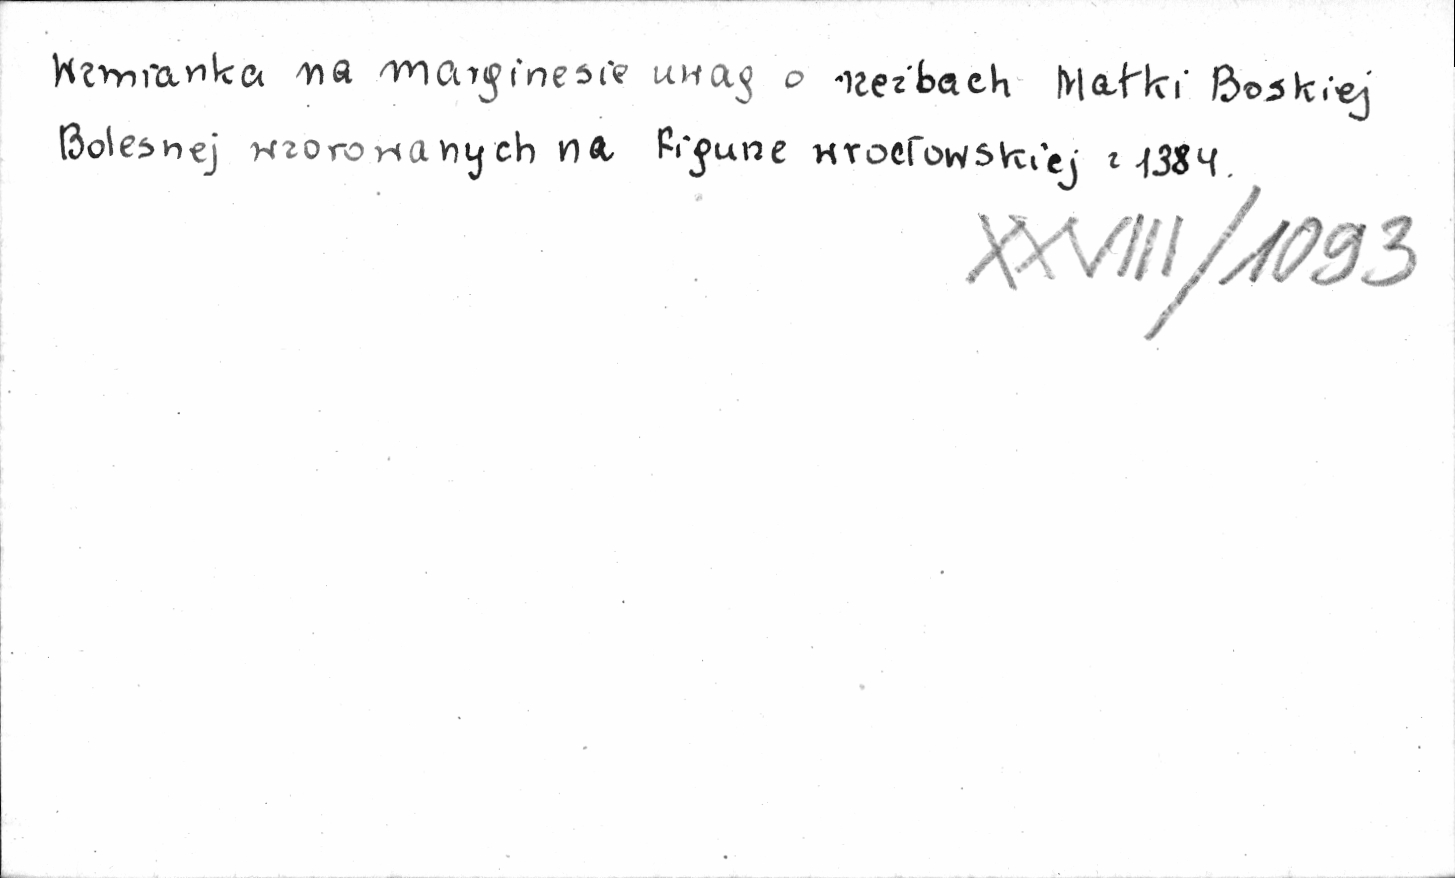 Wzmianka na marginesie uwag o rzeźbach Matki Boskiej
Bolesnej wzorowanych na figurze wrocławskiej z 1384.
XXVIII/1093